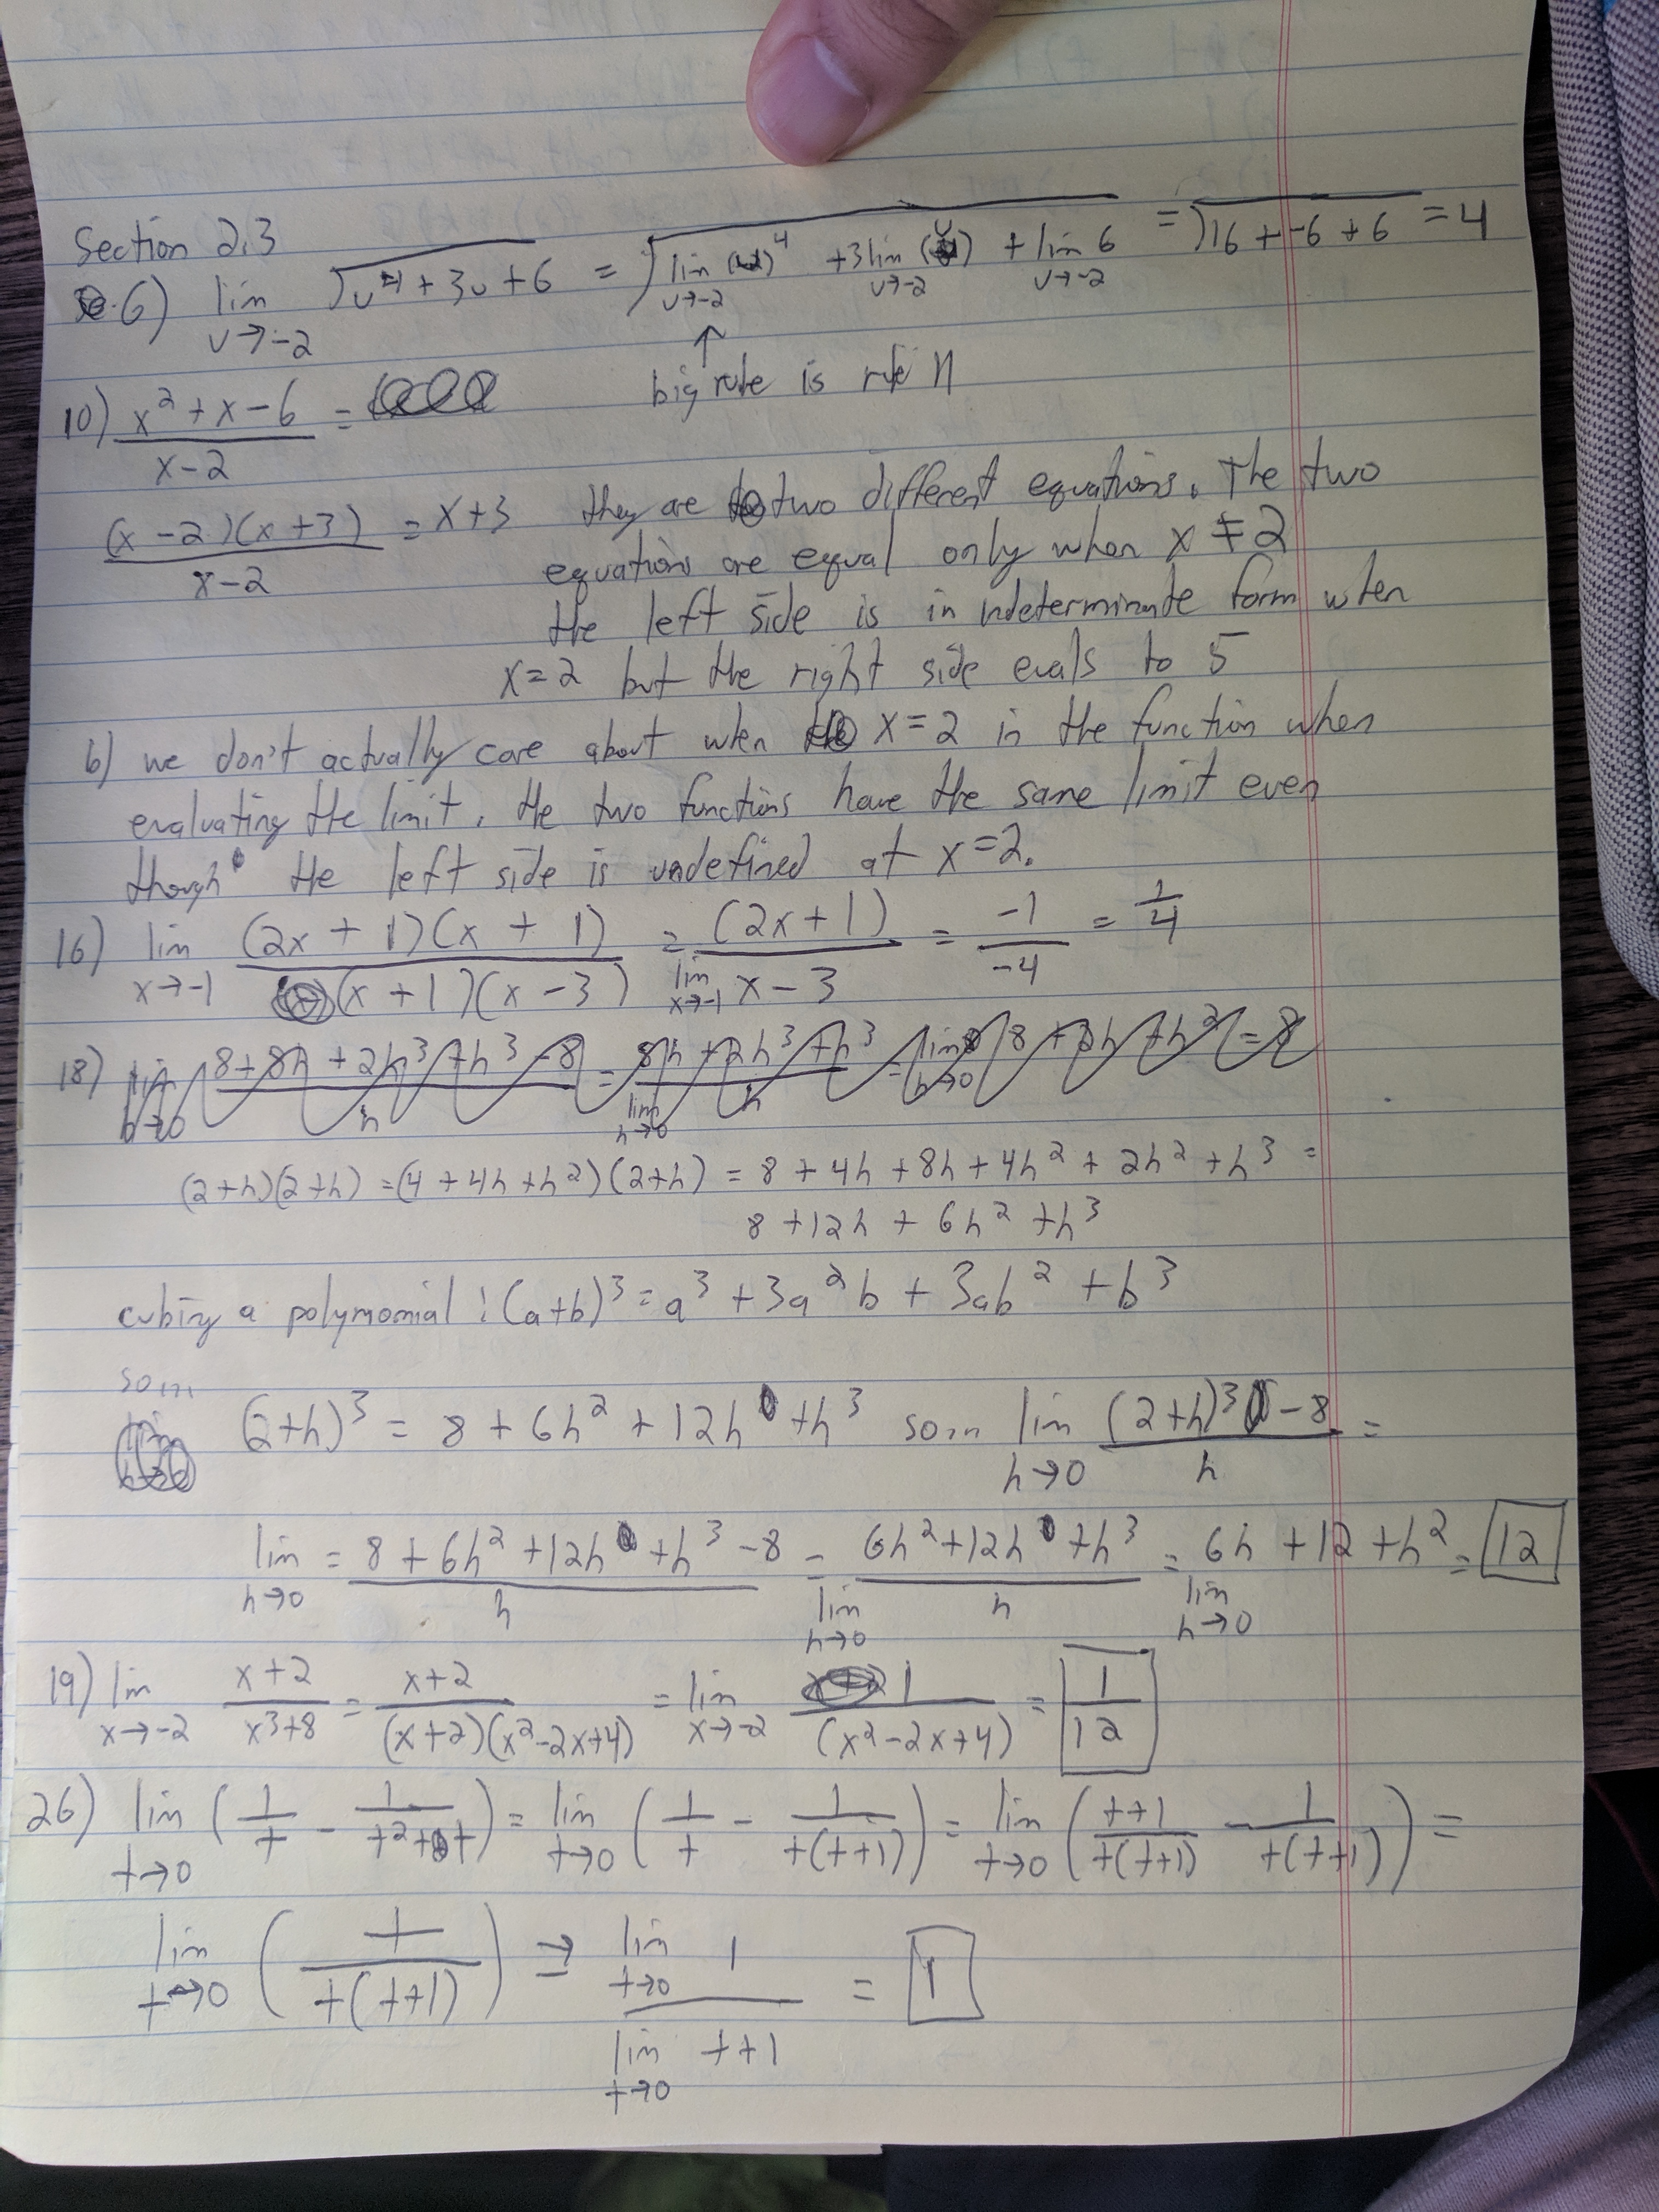 Section 2.3
6) lim u→-2 √(u⁴ + 3u + 6) = √(lim u→-2 (u)⁴ + 3 lim u→-2 (u) + lim u→-2 6) = √(16 + -6 + 6) = 4
↑
big rule is rule 11
10) (x² + x - 6)/(x - 2) =
(x - 2)(x + 3)/(x - 2) = x + 3 they are two different equations. The two
equations are equal only when x ≠ 2
the left side is in indeterminate form when
x = 2 but the right side evals to 5
b) we don't actually care about when x = 2 in the function when
evaluating the limit. the two functions have the same limit even
though the left side is undefined at x = 2.
16) lim x→-1 (2x + 1)(x + 1)/((x + 1)(x - 3)) = lim x→-1 (2x + 1)/(x - 3) = -1/-4 = 1/4
18) lim h→0 (8 + 8h + 2h³ + h³ - 8)/h = lim h→0 (8h + 2h³ + h³)/h = lim h→0 8 + 2h + h² = 8
(2+h)(2+h) = (4 + 4h + h²)(2+h) = 8 + 4h + 8h + 4h² + 2h² + h³ =
8 + 12h + 6h² + h³
cubing a polymomial: (a+b)³ = a³ + 3a²b + 3ab² + b³
so,,,
(2+h)³ = 8 + 6h² + 12h + h³ so,,, lim h→0 ((2+h)³ - 8)/h =
lim h→0 = (8 + 6h² + 12h + h³ - 8)/h = lim h→0 (6h² + 12h + h³)/h = lim h→0 6h + 12 + h² = 12
19) lim x→-2 (x+2)/(x³+8) = (x+2)/((x+2)(x²-2x+4)) = lim x→-2 1/(x²-2x+4) = 1/12
26) lim t→0 (1/t - 1/(t²+t)) = lim t→0 (1/t - 1/(t(t+1))) = lim t→0 ((t+1)/(t(t+1)) - 1/(t(t+1))) =
lim t→0 (t/(t(t+1))) = (lim t→0 1)/(lim t→0 t+1) = 1